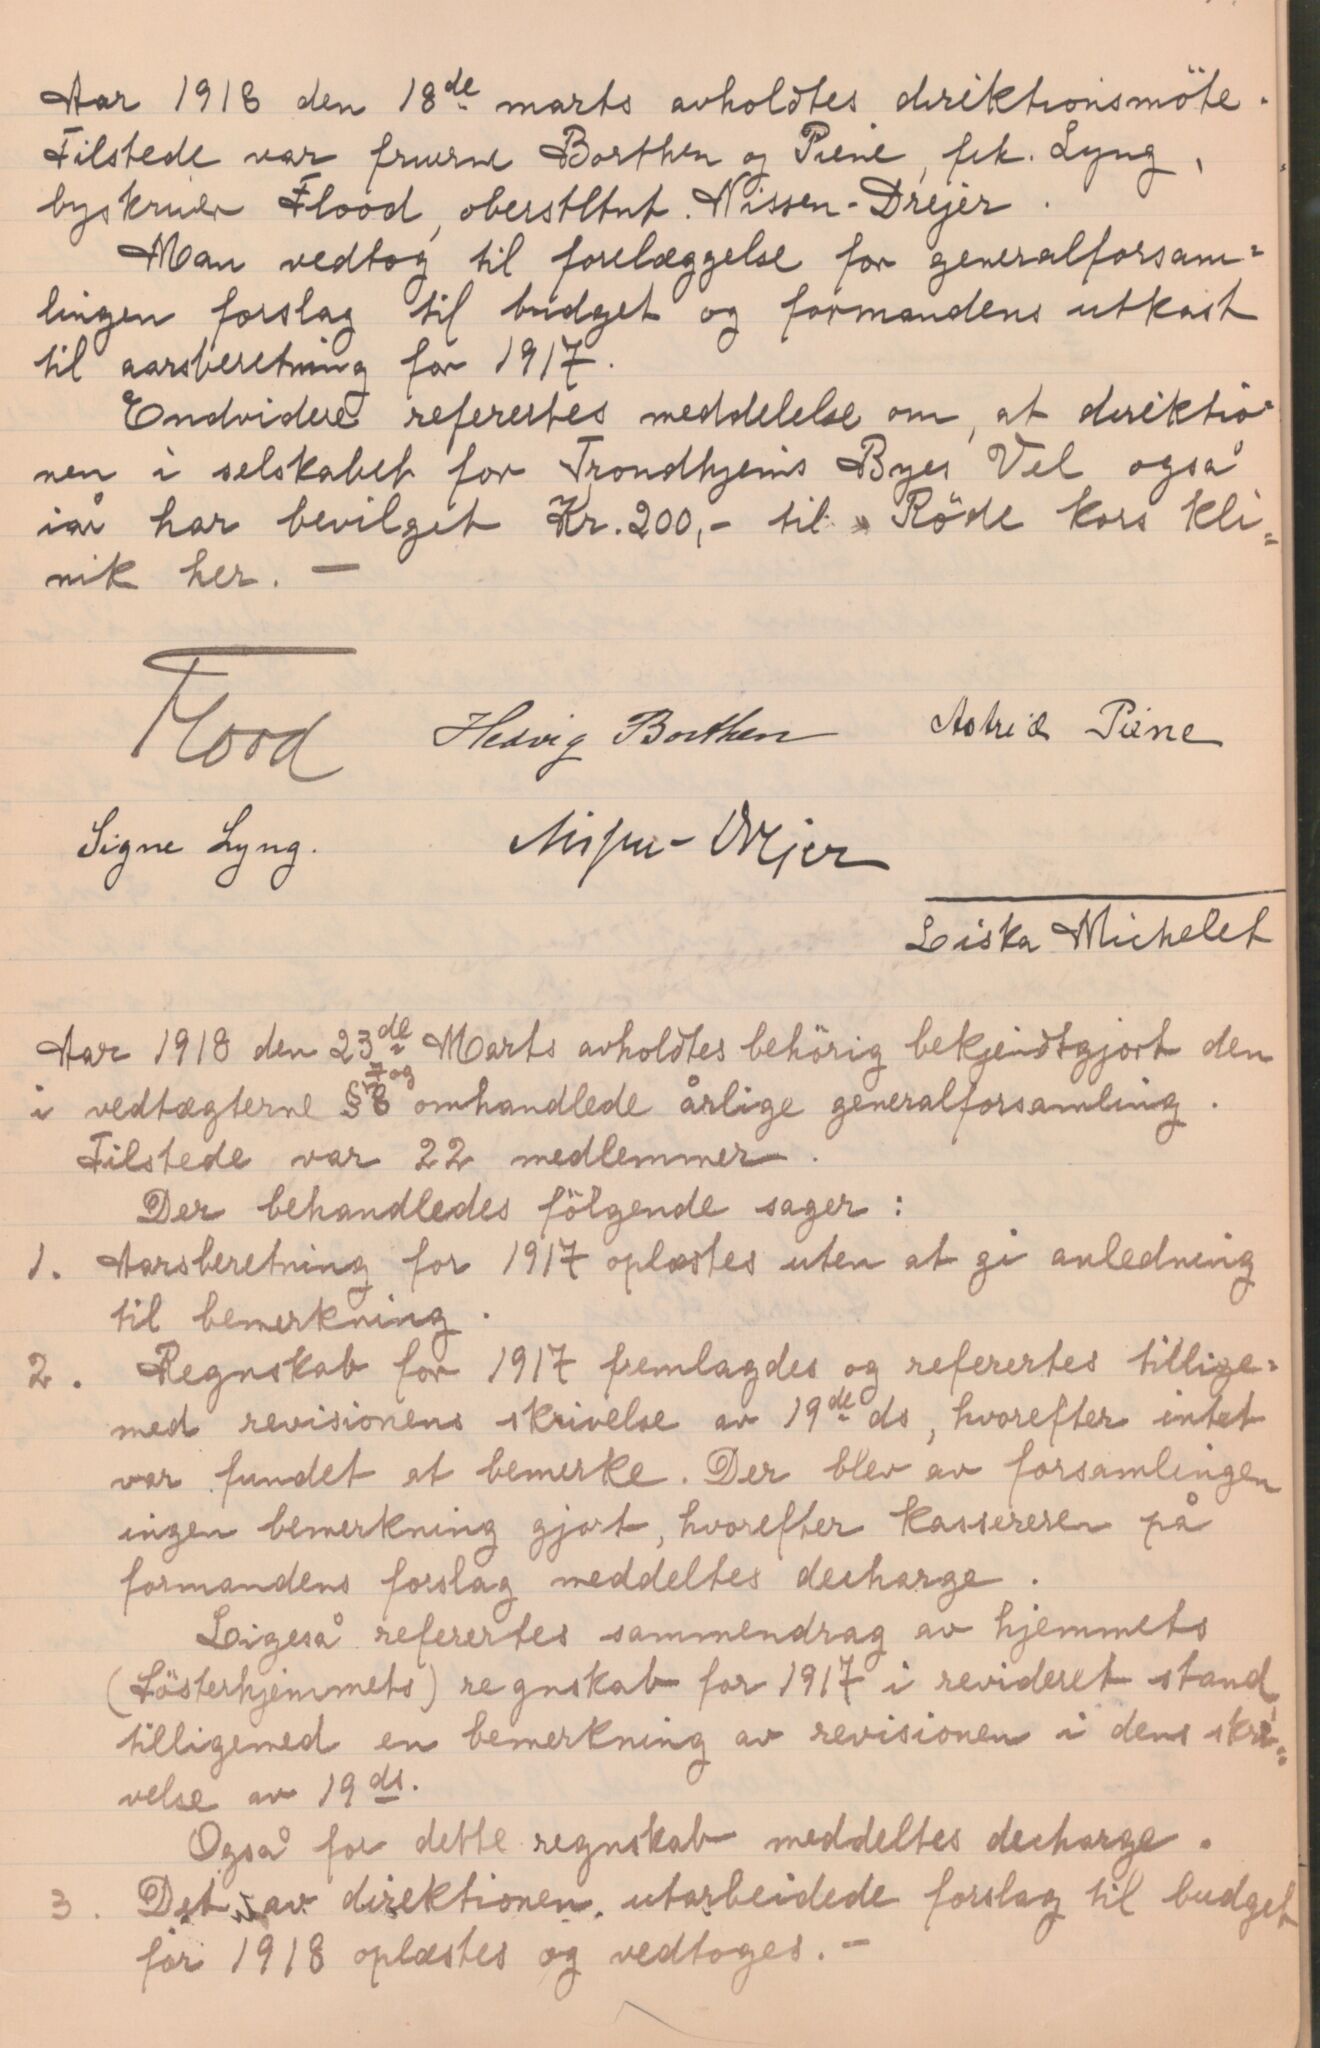 Aar 1918 den 18de marts avholdtes direktionsmöte.
Tilstede var fruerne Borthen og Piene, frk. Lyng,
byskriver Flood, oberstltnt. Nissen-Drejer.
Man vedtog til forelæggelse for generalforsam=
lingen forslag til budget og formandens utkast
til aarsberetning for 1917.
Endvidere referertes meddelelse om, at direktio=
nen i selskabet for Trondhjems Byes Vel også
iår har bevilget Kr. 200,- til Röde kors kli=
nik her. —
Flood Hedvig Borthen Astrid Piene
Signe Lyng. Nissen-Drejer
Liska Michelet
Aar 1918 den 23de Marts avholdtes behörig bekjendtgjort den
7 og
i vedtægterne § 8 omhandlede årlige generalforsamling.
Tilstede var 22 medlemmer.
Der behandledes fölgende sager:
1. Aarsberetning for 1917 oplæstes uten at gi anledning
til bemerkning.
2. Regnskab for 1917 fremlagdes og referertes tillige=
med revisionens skrivelse av 19de ds, hvorefter intet
var fundet at bemerke. Der blev av forsamlingen
ingen bemerkning gjort, hvorefter kassereren på
formandens forslag meddeltes decharge.
Ligeså referertes sammendrag av hjemmets
(Fösterhjemmets) regnskab for 1917 i revideret stand,
tilligemed en bemerkning av revisionen i dens skri=
velse av 19 ds.
Også for dette regnskab meddeltes decharge.
3. Det av direktionen utarbeidede forslag til budget
for 1918 oplæstes og vedtoges. —